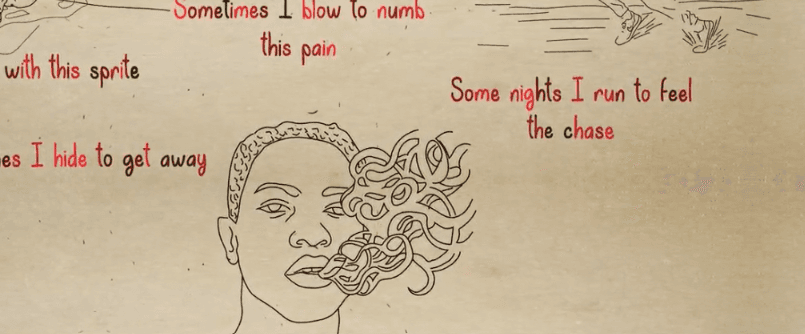 Sometimes I blow to numb
this pain
with this sprite
Some nights I run to feel
the chase
I hide to get away